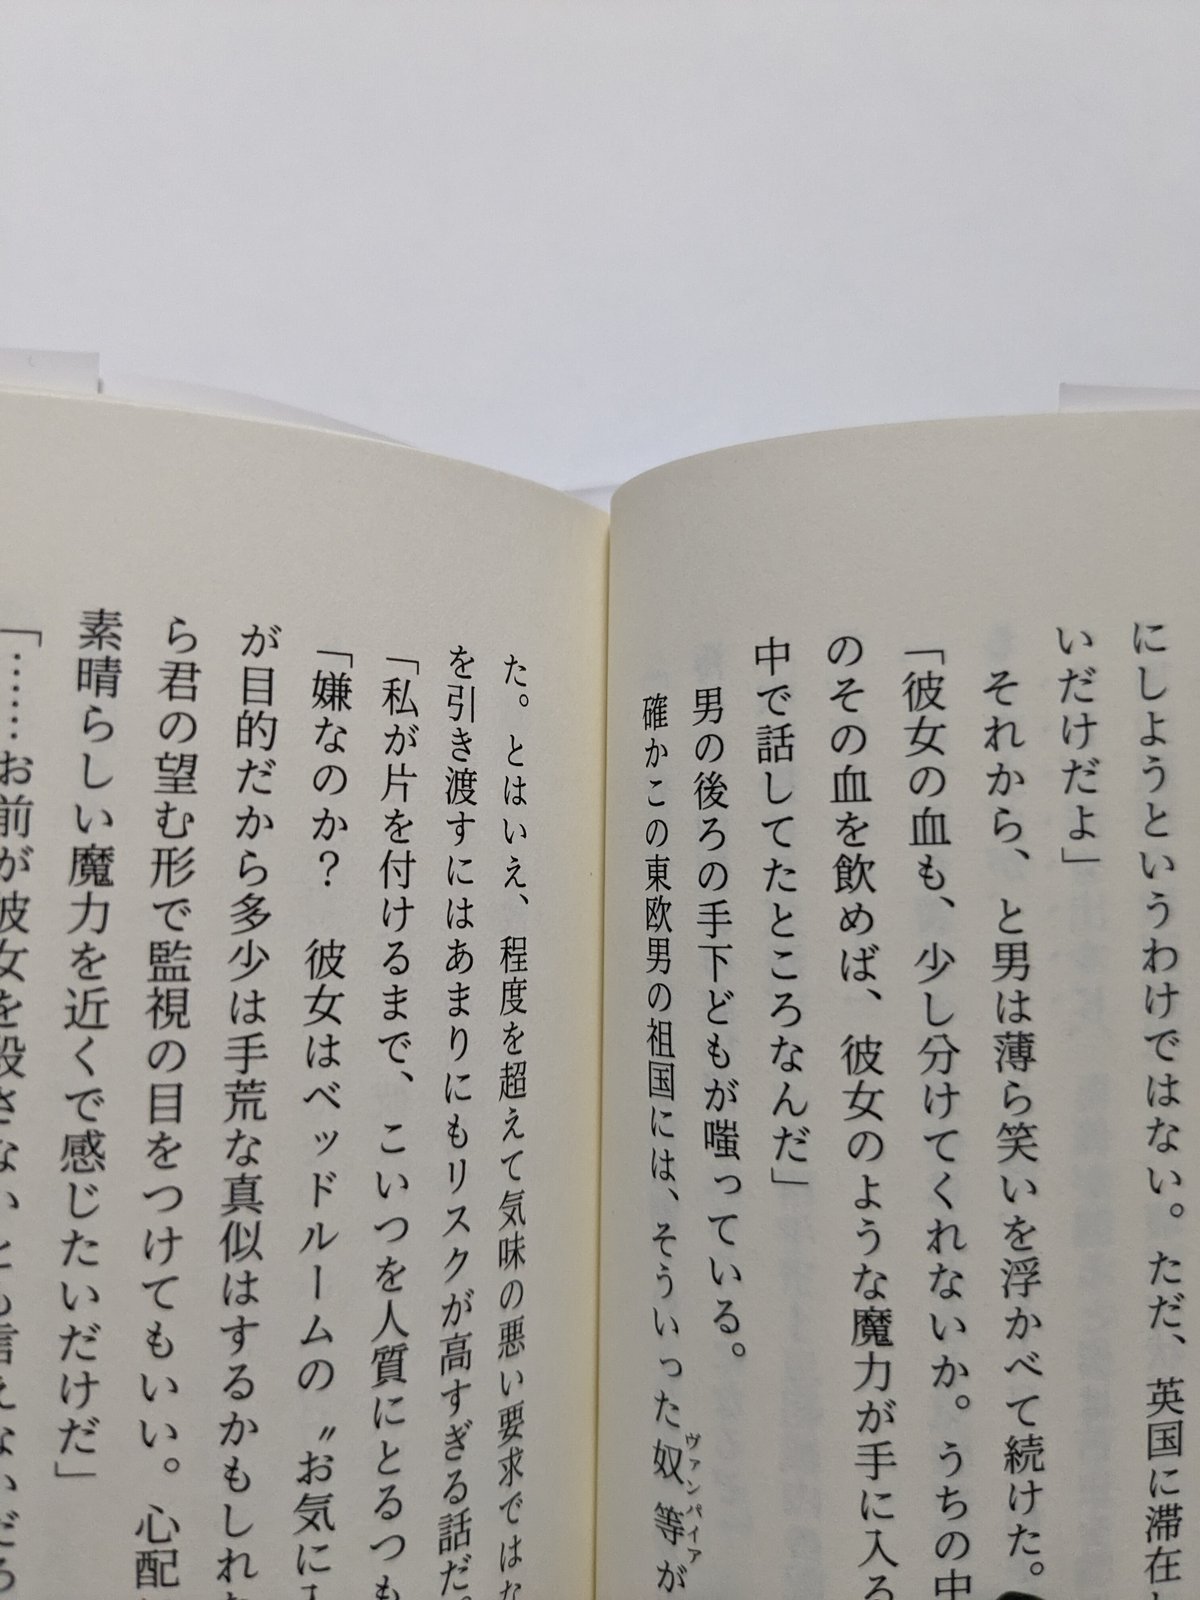 にしようというわけではない。ただ、英国に滞在
いだけだよ」
それから、と男は薄ら笑いを浮かべて続けた。
「彼女の血も、少し分けてくれないか。うちの中
のその血を飲めば、彼女のような魔力が手に入る
中で話してたところなんだ」
男の後ろの手下どもが嗤っている。
確かこの東欧男の祖国には、そういった奴等が
ヴァンパイア
た。とはいえ、程度を超えて気味の悪い要求ではな
を引き渡すにはあまりにもリスクが高すぎる話だ。
「私が片を付けるまで、こいつを人質にとるつも
「嫌なのか？　彼女はベッドルームの〝お気に入
が目的だから多少は手荒な真似はするかもしれな
ら君の望む形で監視の目をつけてもいい。心配
素晴らしい魔力を近くで感じたいだけだ」
「……お前が彼女を殺さないとも言えないだろ